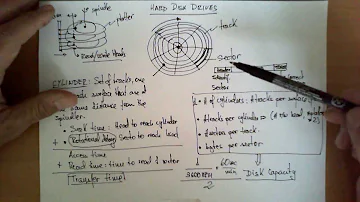 HARD DISK DRIVES
spindle
platter
Read/Write Heads
track
sector
header
Sector
CYLINDER: Set of tracks, one
surface that are at
same distance from the
Spindle
• Seek time: Head to reach cylinder
+ • Rotational delay: Sector to reach head
Access time
+ • Read time: time to read 1 sector
Transfer time
• # of cylinders: #tracks per surface
• #tracks per cylinder
• #sectors per track
• bytes per sector
Disk capacity
1
3600 RPM
60 sec
min
2